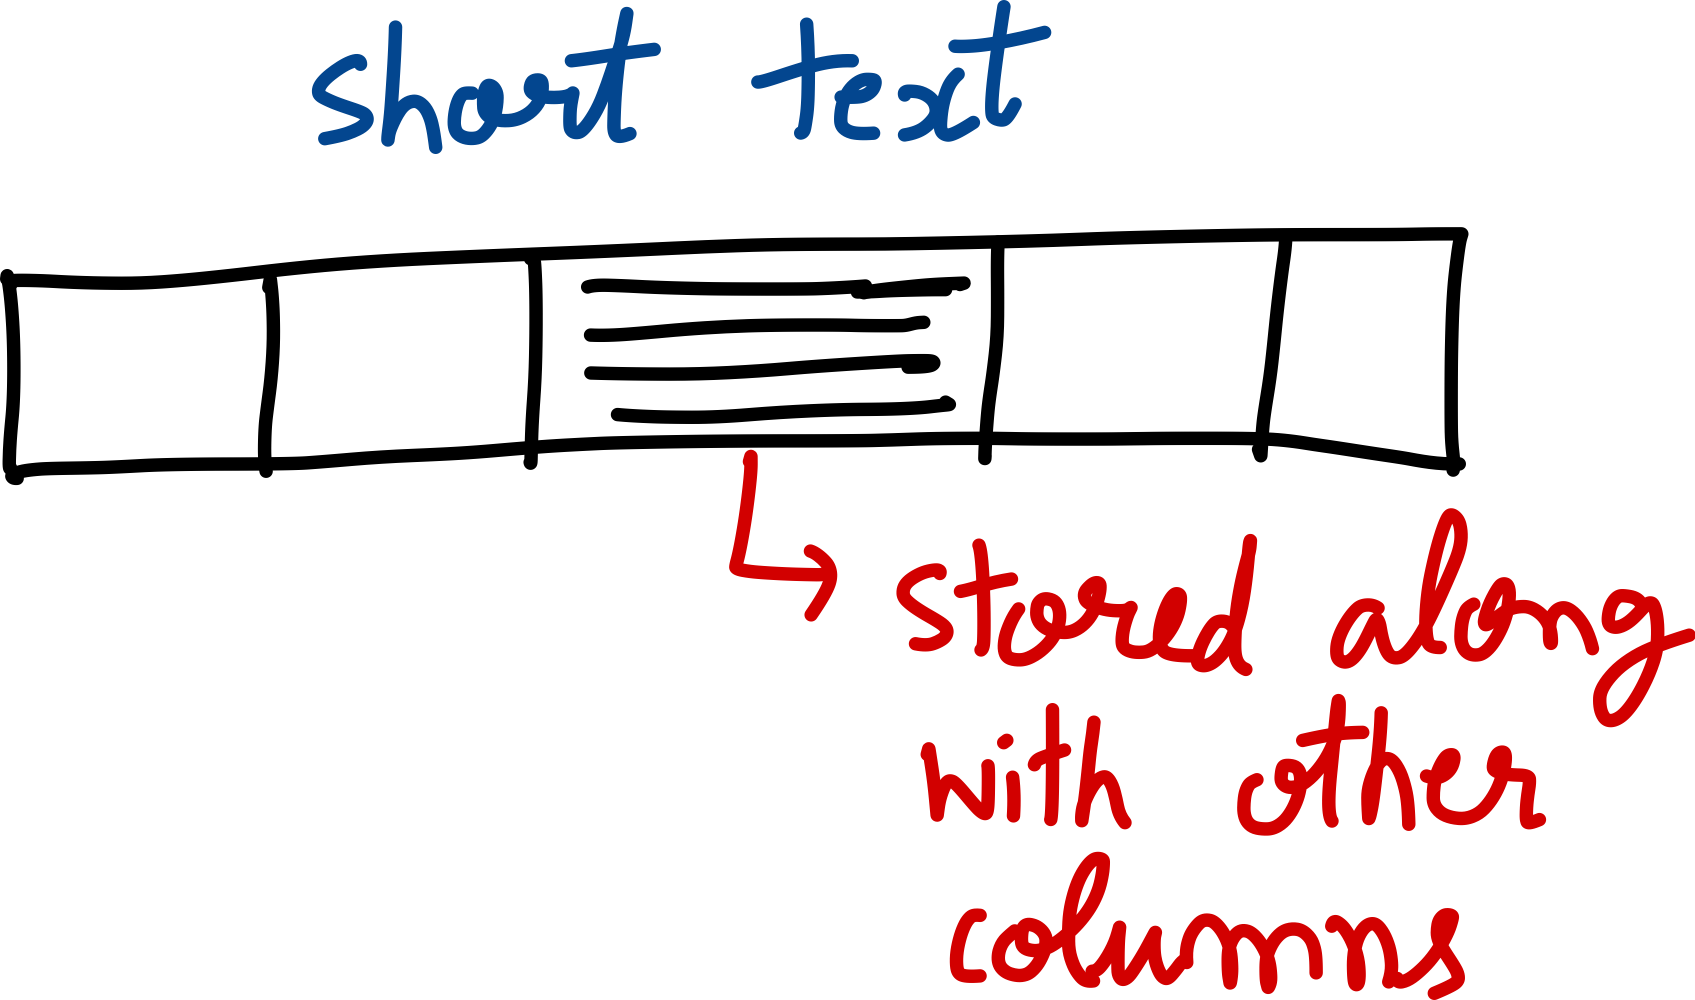 short text
stored along
with other
columns